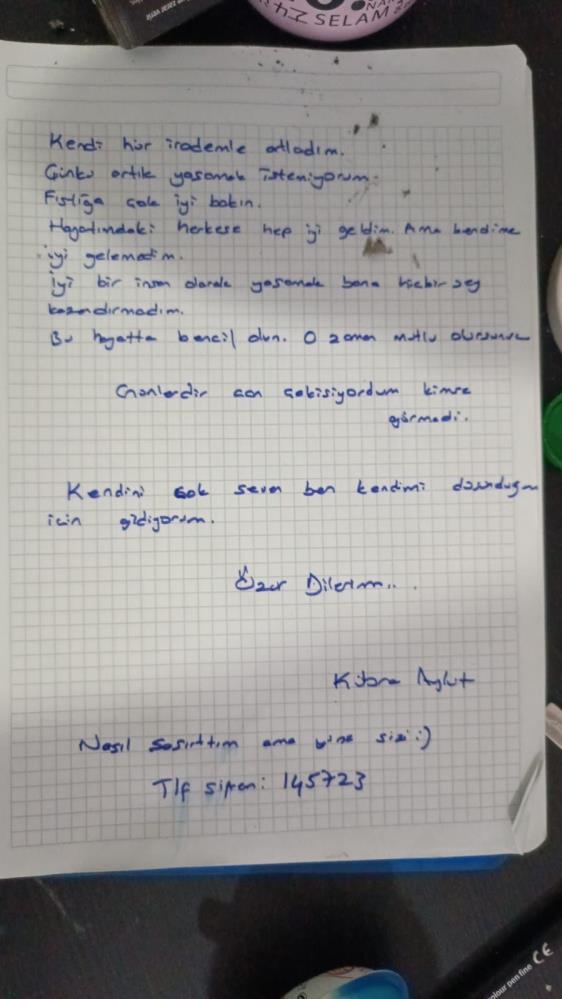 SELAM
Kendi hür irademle atladım.
Çünkü artık yaşamak istemiyorum.
Fıstığa çok iyi bakın.
Hayatımdaki herkese hep iyi geldim. Ama kendime
iyi gelemedim.
İyi bir insan olarak yaşamak bana hiçbir şey
kazandırmadım.
Bu hayatta bencil olun. O zaman mutlu olursunuz
Günlerdir can çekişiyordum kimse
görmedi.
Kendini çok seven ben kendimi
için gidiyorum.
Özür Dilerim...
Kübra Aykut
Nasıl şaşırttım ama yine sizi :)
Tlf şifrem: 145723
colour pen fine CE